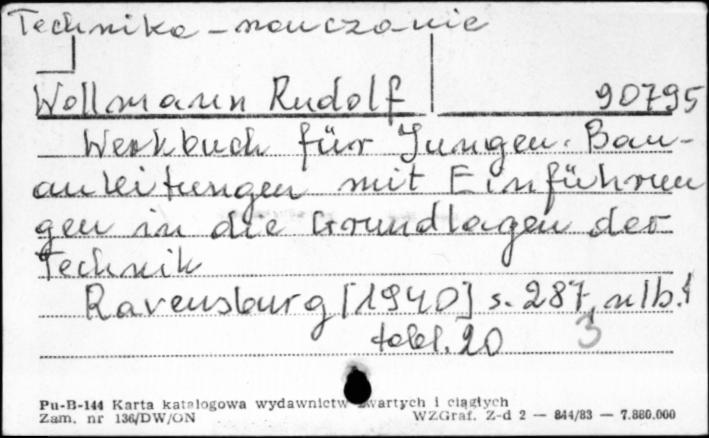 Technika - nauczanie
Wollmann Rudolf 90795
Werkbuch für Jungen. Bau-
anleitungen mit Einführun
gen in die Grundlagen der
Technik
Ravensburg [1940] s. 287, nlb. 1
tabl. 20 3
Pu-B-144 Karta katalogowa wydawnictw zwartych i ciągłych
Zam. nr 136/DW/ON WZGraf. Z-d 2 — 844/83 — 7.880.000